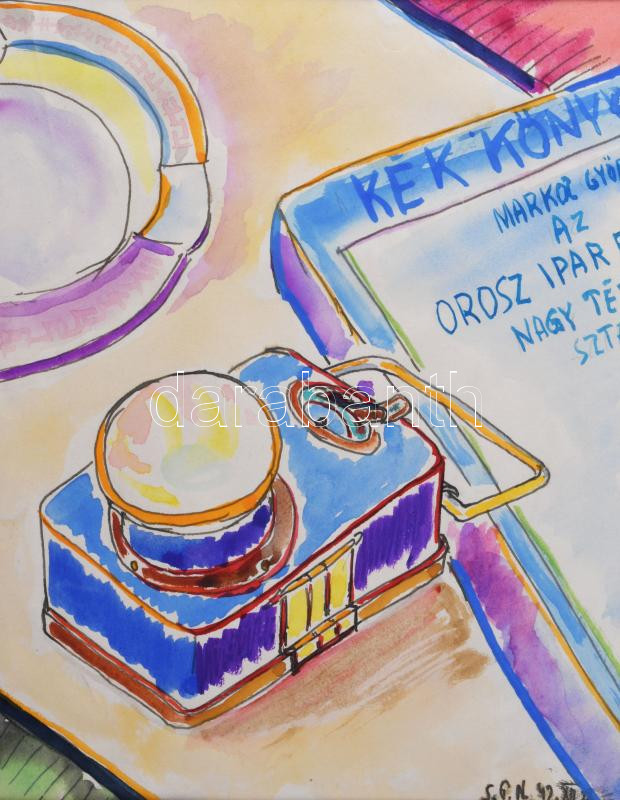 KÉK KÖNY
MARKOS GYÖR
AZ
OROSZ IPAR
NAGY TÉ
SZTA
darabanth